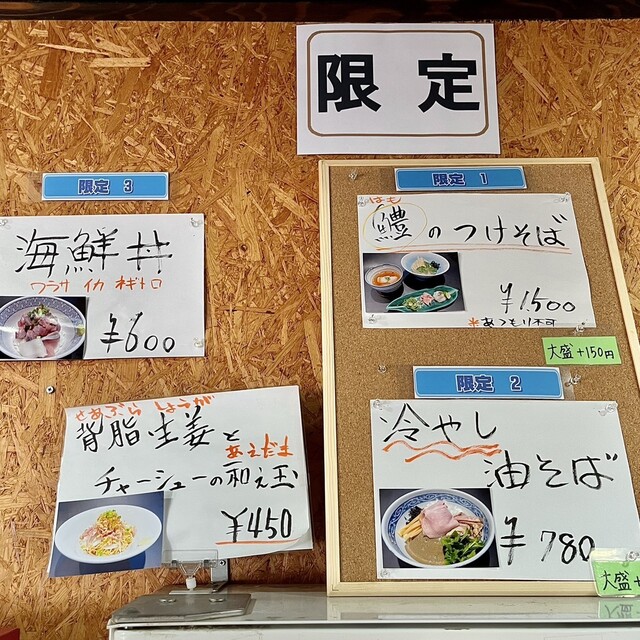 限定
限定 3
海鮮丼
ワラサ イカ ネギトロ
¥600
せあぶら しょうが
背脂生姜と
あえだま
チャーシューの和え玉
¥450
限定 1
はも
鱧のつけそば
¥1,500
大盛+150円
限定 2
冷やし
油そば
¥780
大盛+